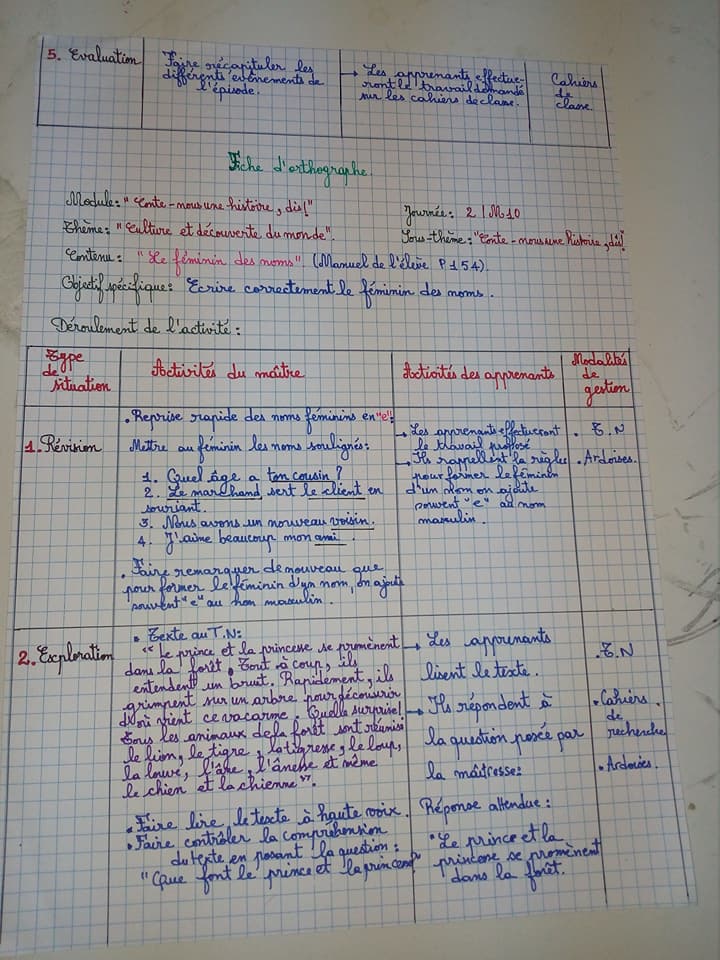 5. Evaluation
Faire récapituler les
différents évènements de
l'épisode.
→ Les apprenants effectue-
ront le travail demandé
sur les cahiers de classe.
Cahiers
de
classe.
Fiche d'orthographe.
Module: "Conte-nous une histoire, dis!"
Journée: 2 / M10
Thème: "Culture et découverte du monde".
Sous-thème: "Conte-nous une histoire, dis!"
Contenu: "Le féminin des noms". (Manuel de l'élève P 154).
Objectif spécifique: Ecrire correctement le féminin des noms.
Déroulement de l'activité:
Type
de
situation
Activités du maître
Activités des apprenants
Modalités
de
gestion
1. Révision
• Reprise rapide des noms féminins en "e":
Mettre au féminin les noms soulignés:
1. Quel âge a ton cousin?
2. Le marchand sert le client en
souriant.
3. Nous avons un nouveau voisin.
4. J'aime beaucoup mon ami.
• Faire remarquer de nouveau que
pour former le féminin d'un nom, on ajoute
souvent "e" au nom masculin.
→ Les apprenants effectueront
le travail proposé
→ Ils rappellent la règle
pour former le féminin
d'un nom on ajoute
souvent "e" au nom
masculin.
• T.N
• Ardoises.
2. Exploration
• Texte au T.N:
"Le prince et la princesse se promènent
dans la forêt. Tout à coup, ils
entendent un bruit. Rapidement, ils
grimpent sur un arbre pour découvrir
d'où vient ce vacarme. Quelle surprise!
Tous les animaux de la forêt sont réunis:
le lion, le tigre, la tigresse, le loup,
la louve, l'âne, l'ânesse et même
le chien et la chienne".
• Faire lire le texte à haute voix.
• Faire contrôler la compréhension
du texte en posant la question:
"Que font le prince et la princesse"
→ Les apprenants
lisent le texte.
→ Ils répondent à
la question posée par
la maîtresse:
Réponse attendue:
• Le prince et la
princesse se promènent
dans la forêt.
• T.N
• Cahiers
de
recherche
• Ardoises.